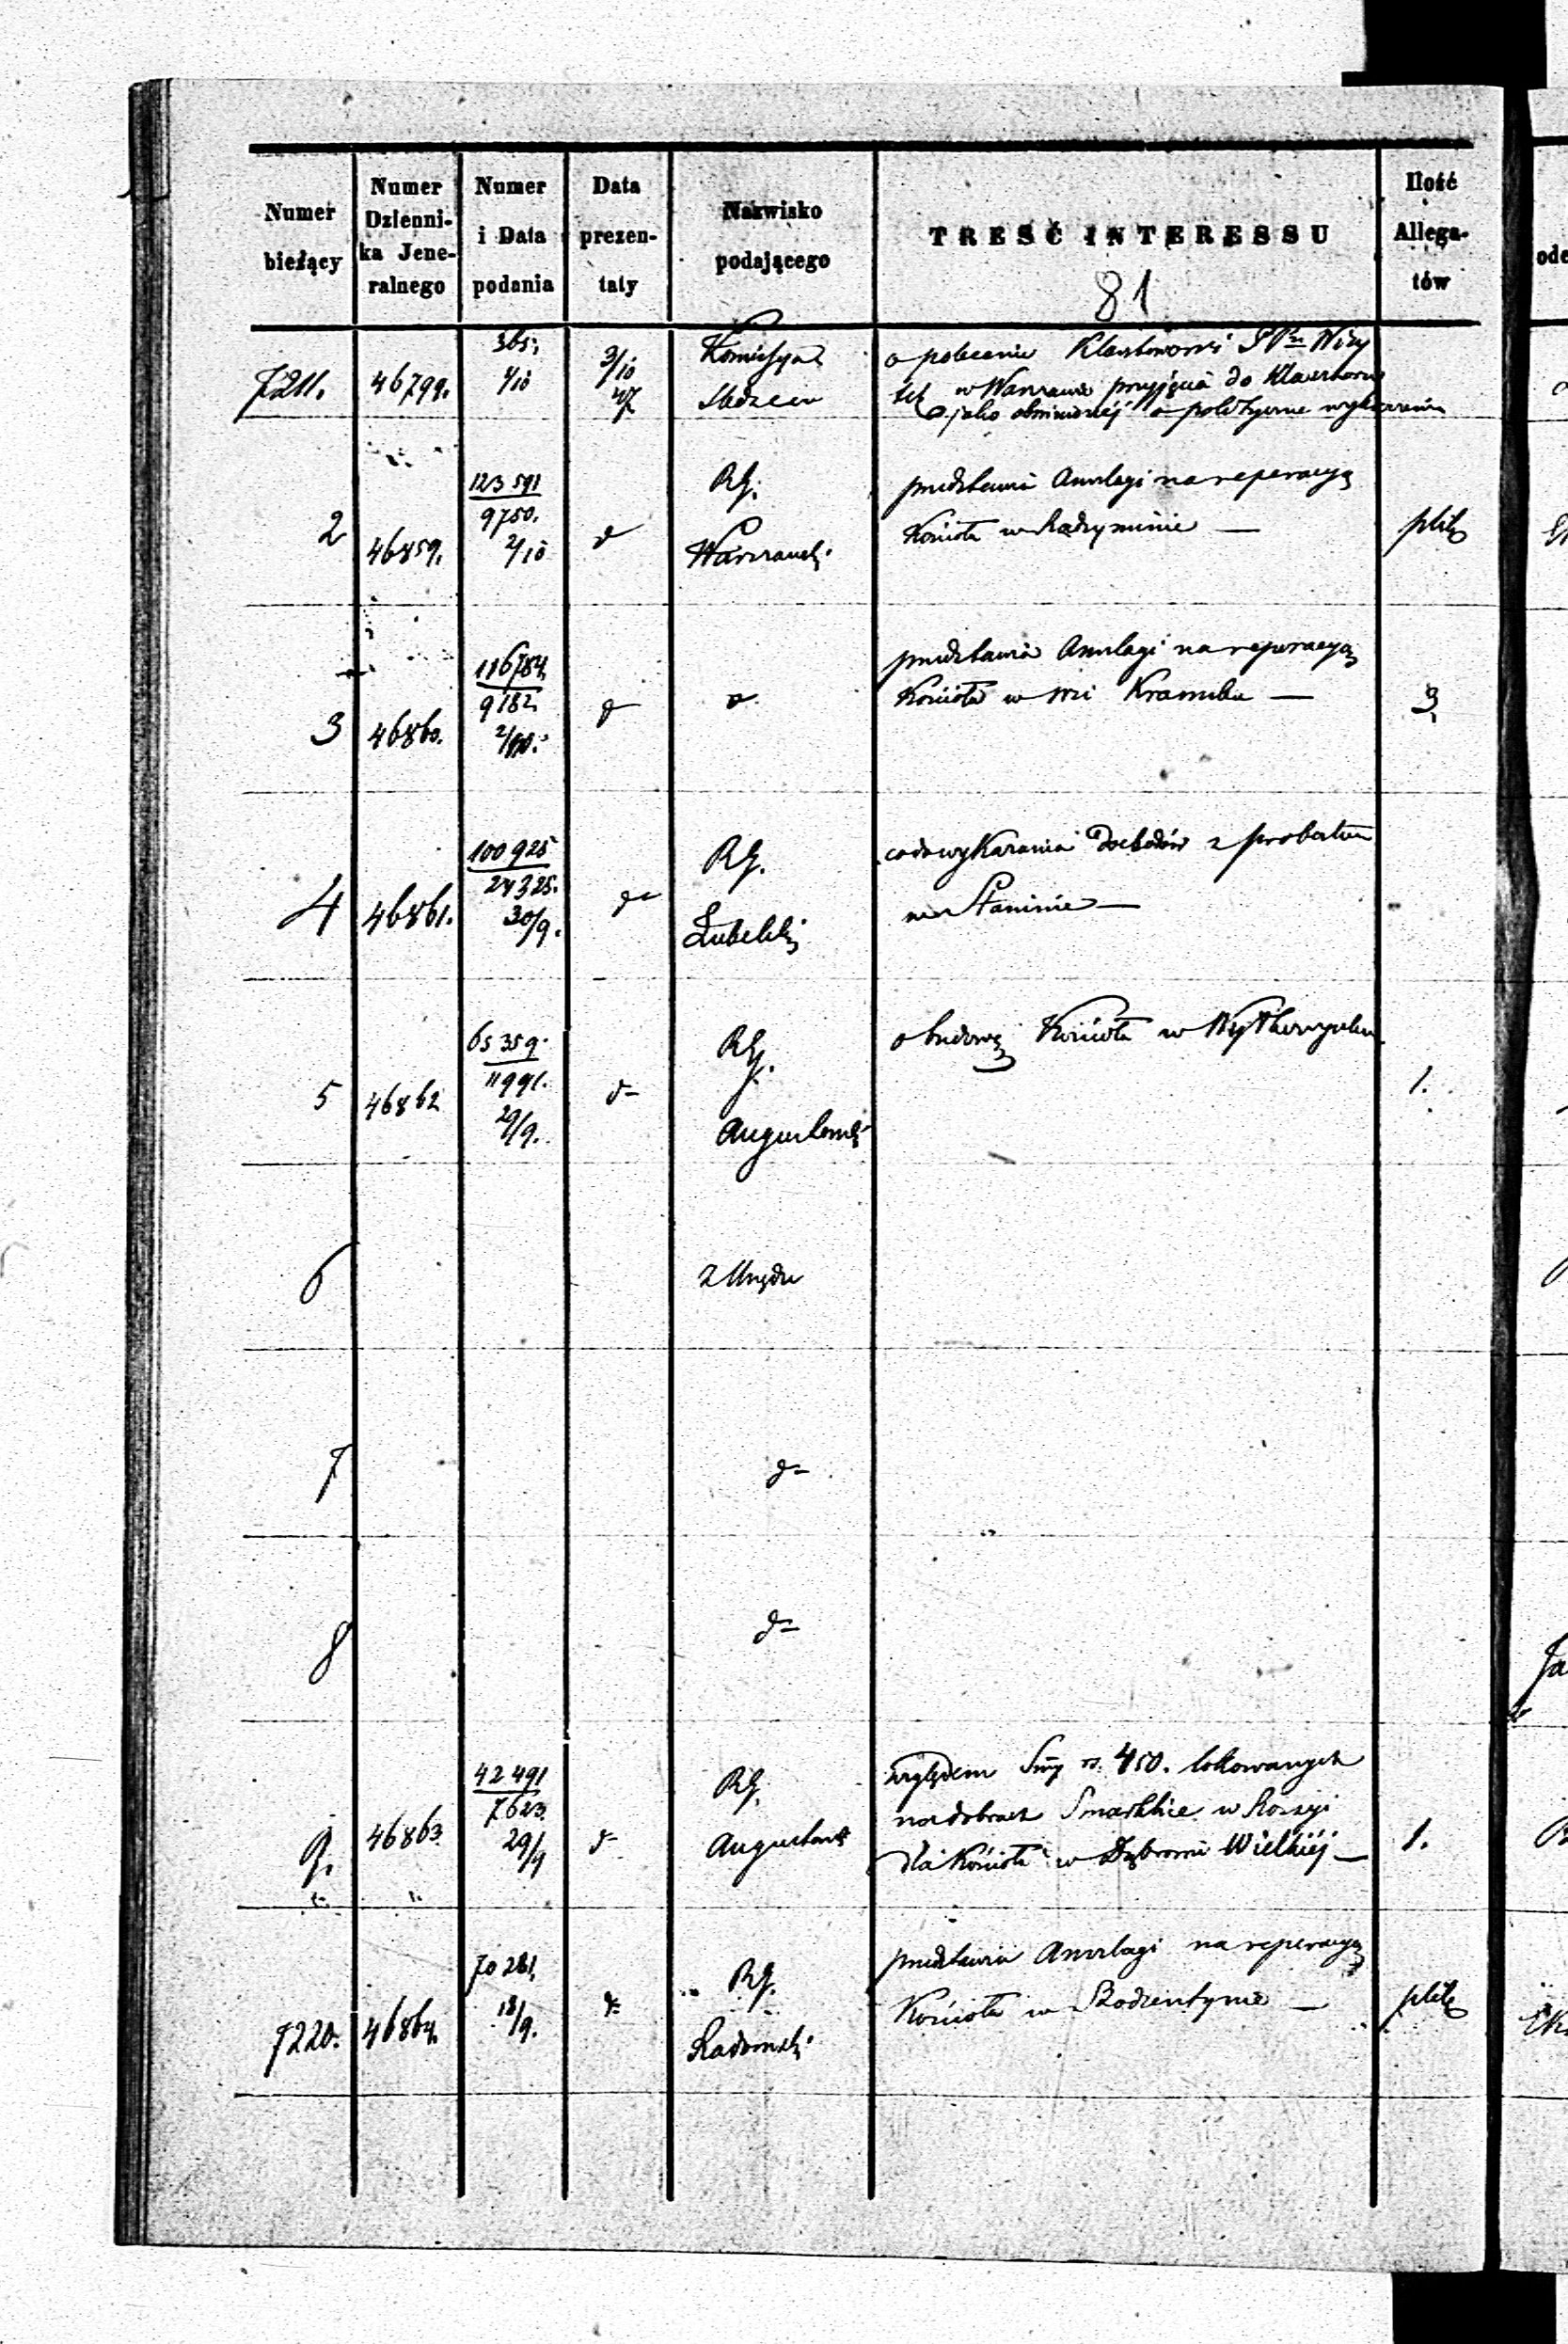 Numer bieżący
Numer Dzienni-ka Jene-ralnego
Numer i Data podania
Data prezen-taty
Nazwisko podającego
TREŚĆ INTERESSU
Ilość Allega-tów
81
7211. 46799. 365; 1/10 3/10 47 Komissya Śledcza
o polecenie Klasztorowi PPn Wizy
tek w Warszawie przyjęcia do Klasztoru
jako obwinionej o polityczne wykroczenia
2 46859. 123591 9750. 2/10 d Rg. Warszawski
przedstawia Anszlagi na reperacyą
Kościoła w Radzyminie — plik
3 46860. 116784 9182. 2/10. d d
przedstawia Anszlagi na reperacyą
Kościoła w wsi — 3
4 46861. 100925 24325. 30/9. do Rg. Lubelski
co do wykazania Dochodów z probostwa
w Staninie —
5 46862 65359. 11991. 29/9. d- Rg. Augustowski
o budowę Kościoła w 1.
6 z Urzędu
7 d-
8 d-
9. 46863 42491 7623. 29/9 d- Rg. Augustowski
względem Sumy rs. 450. lokowanych
na dobrach w Rossyi
dla Kościoła w Dąbrowie Wielkiéj — 1.
7220. 46864. 70281. 18/9. d- Rg. Radomski
przedstawia Anszlagi na reperacyą
Kościoła w Bodzentynie — plik